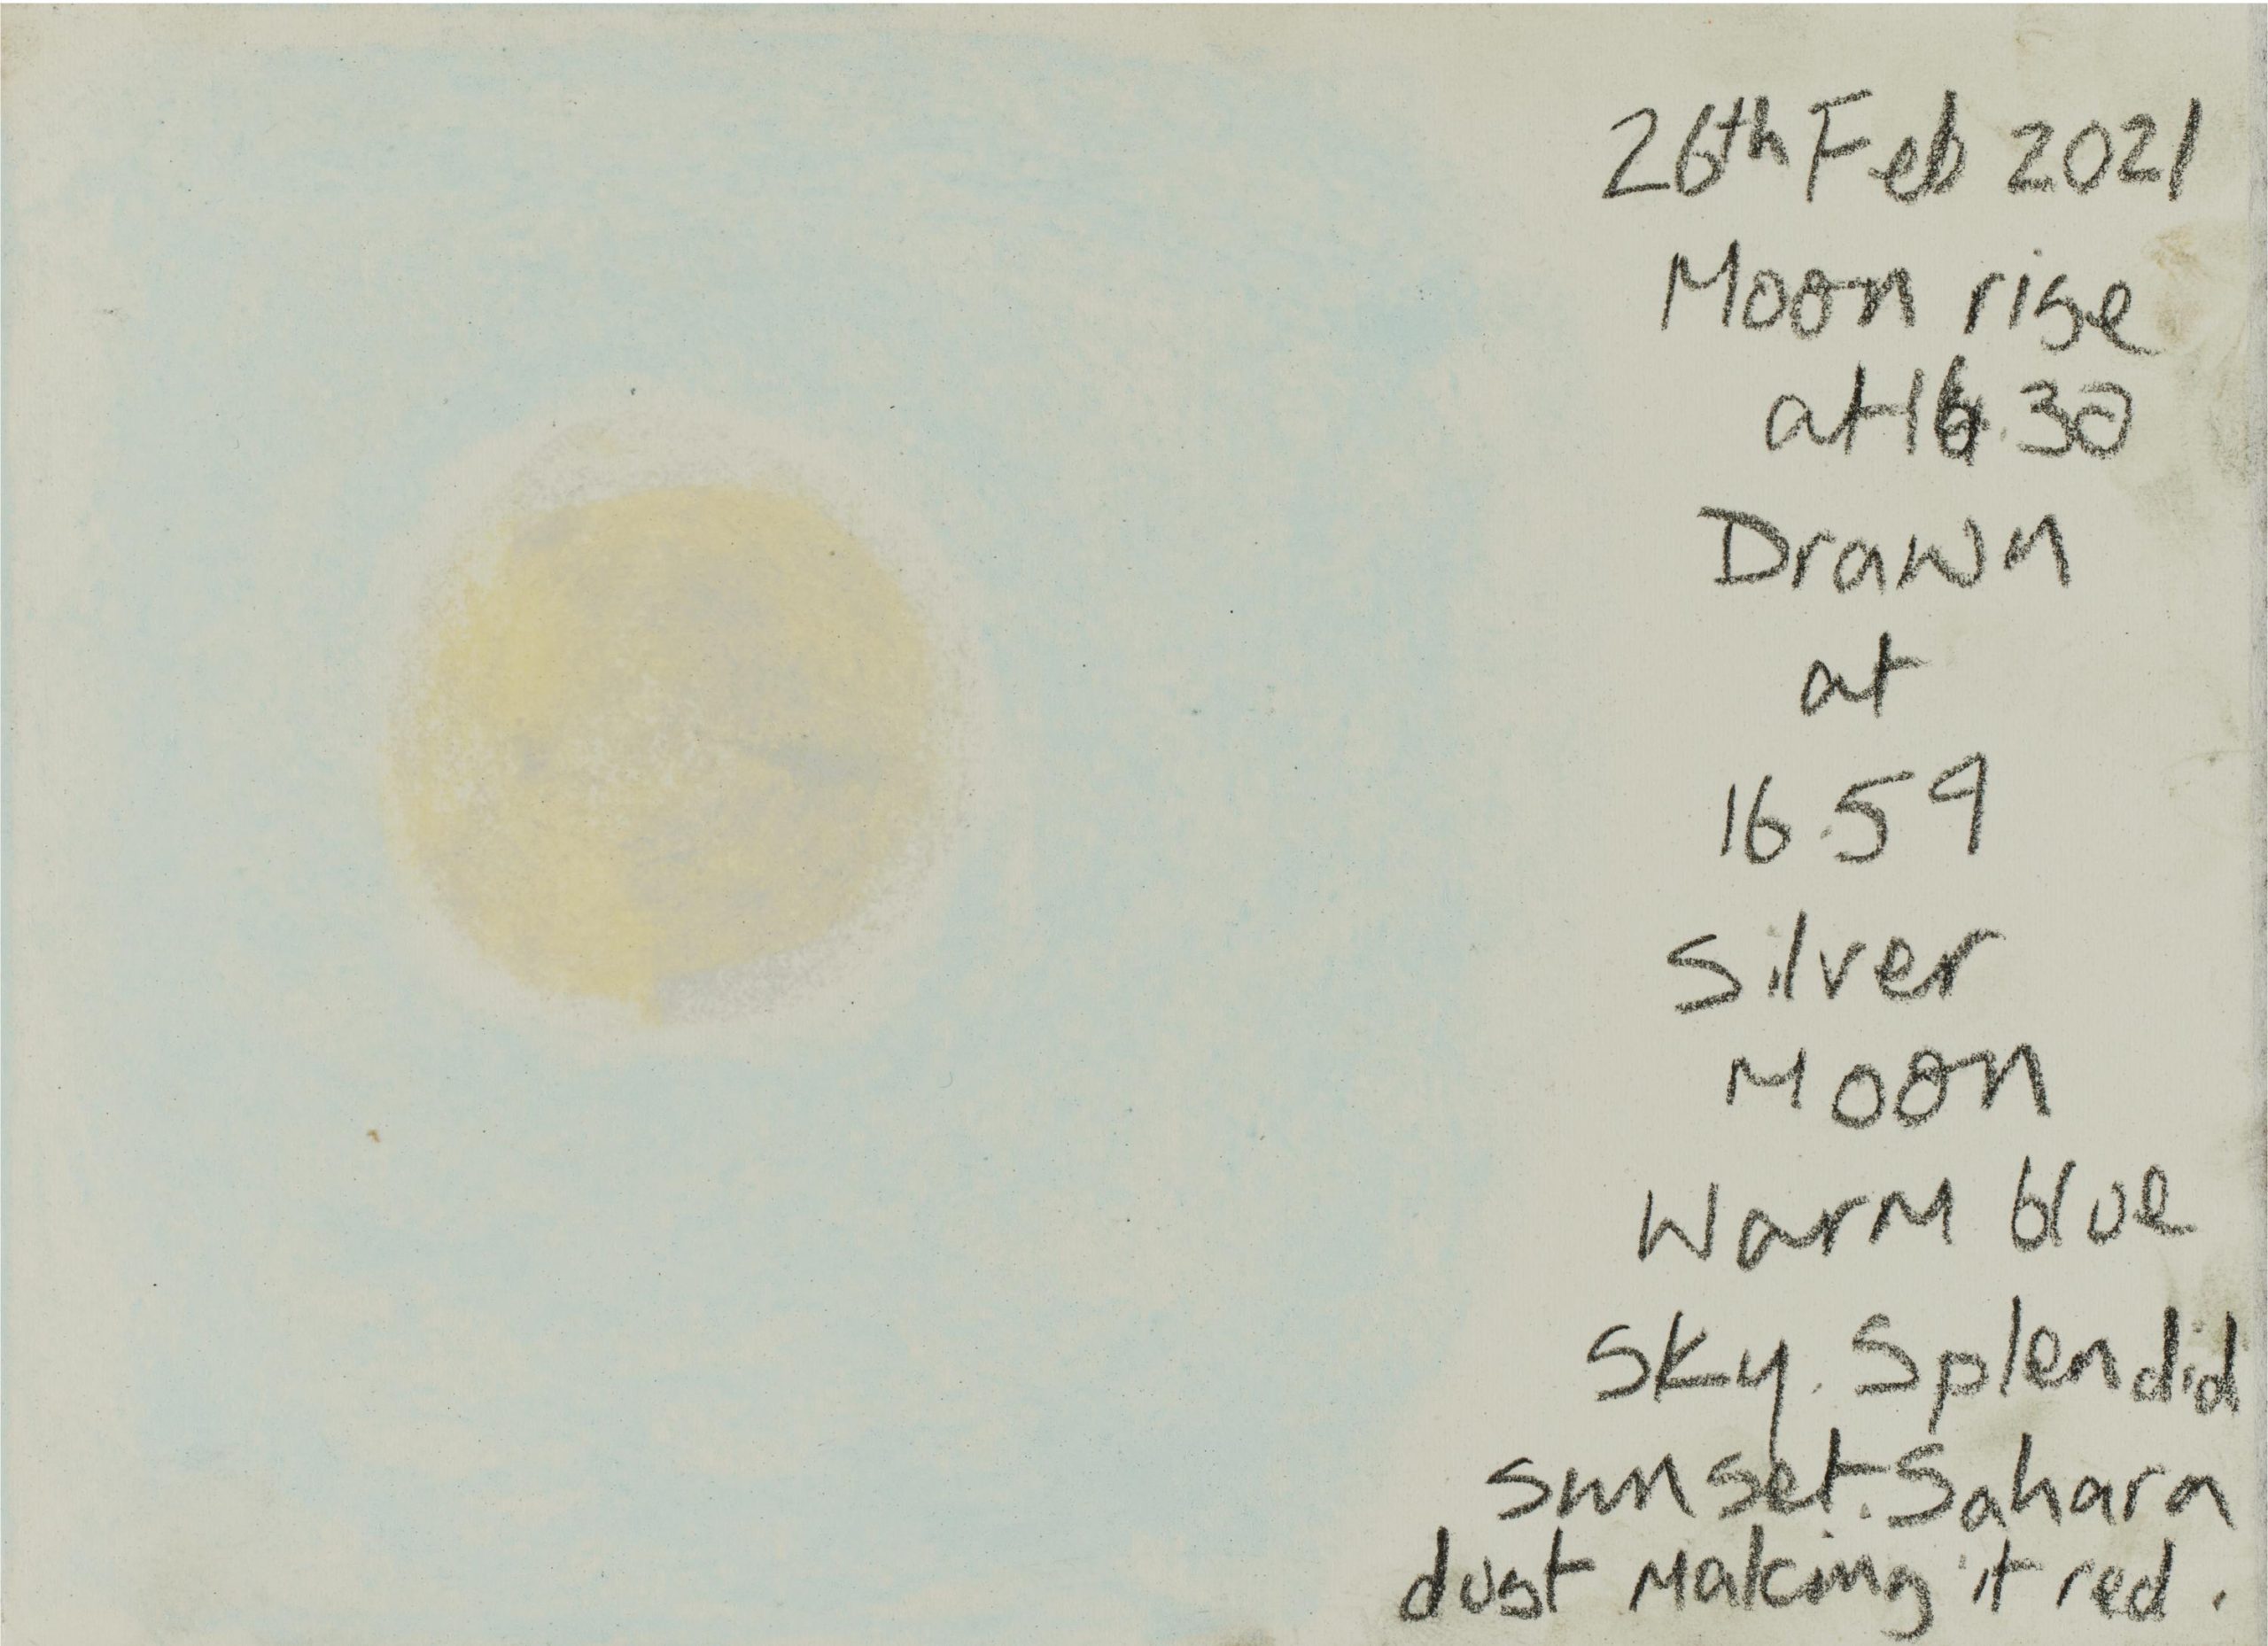 26th Feb 2021
Moon rise
at 16.30
Drawn
at
16.59
Silver
Moon
Warm blue
Sky. Splendid
sunset. Sahara
dust making it red.